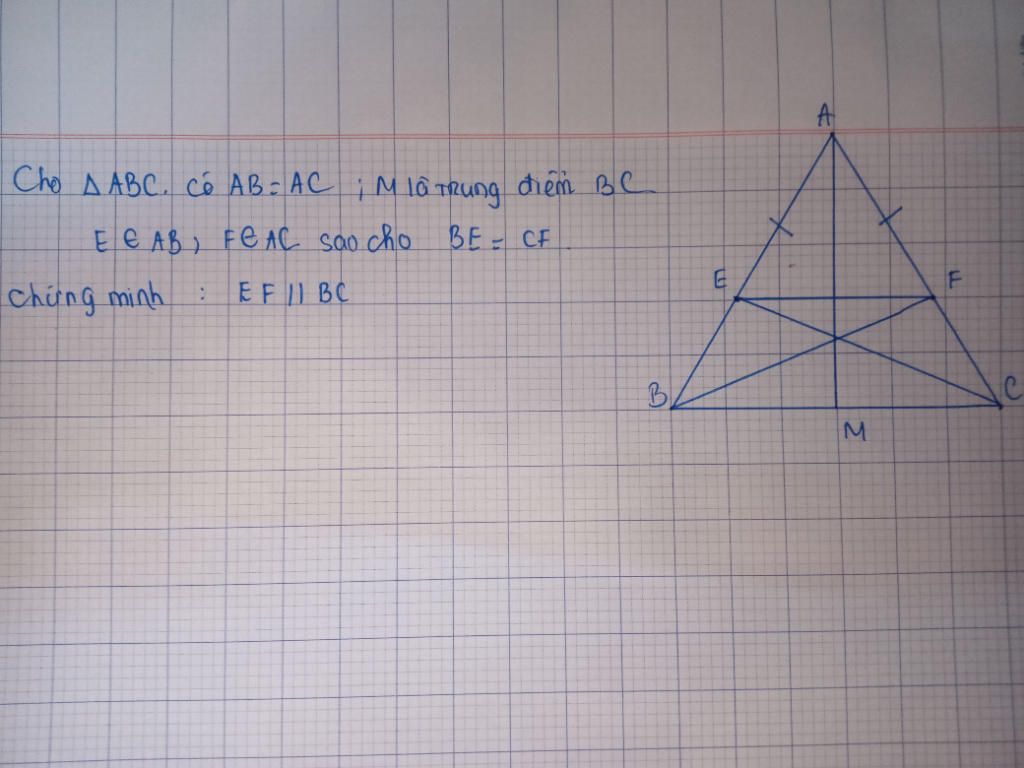 Cho ΔABC. có AB = AC ; M là trung điểm BC
E ∈ AB, F ∈ AC sao cho BE = CF.
chứng minh : EF // BC
A
E
F
B
C
M